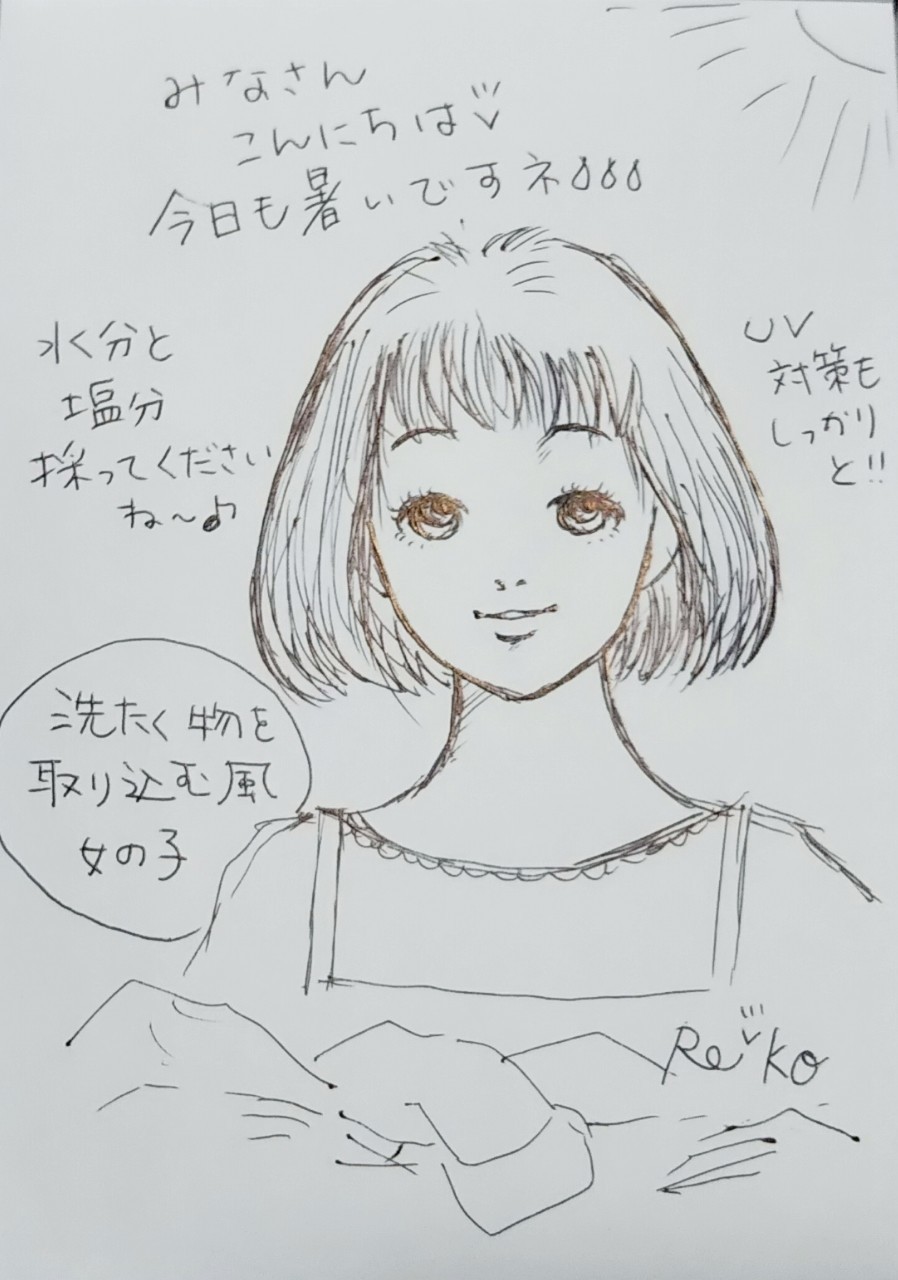 みなさん
こんにちは
今日も暑いですネ
水分と
塩分
採ってください
ね～♪
UV
対策も
しっかり
と!!
洗たく物を
取り込む風
女の子
Reiko